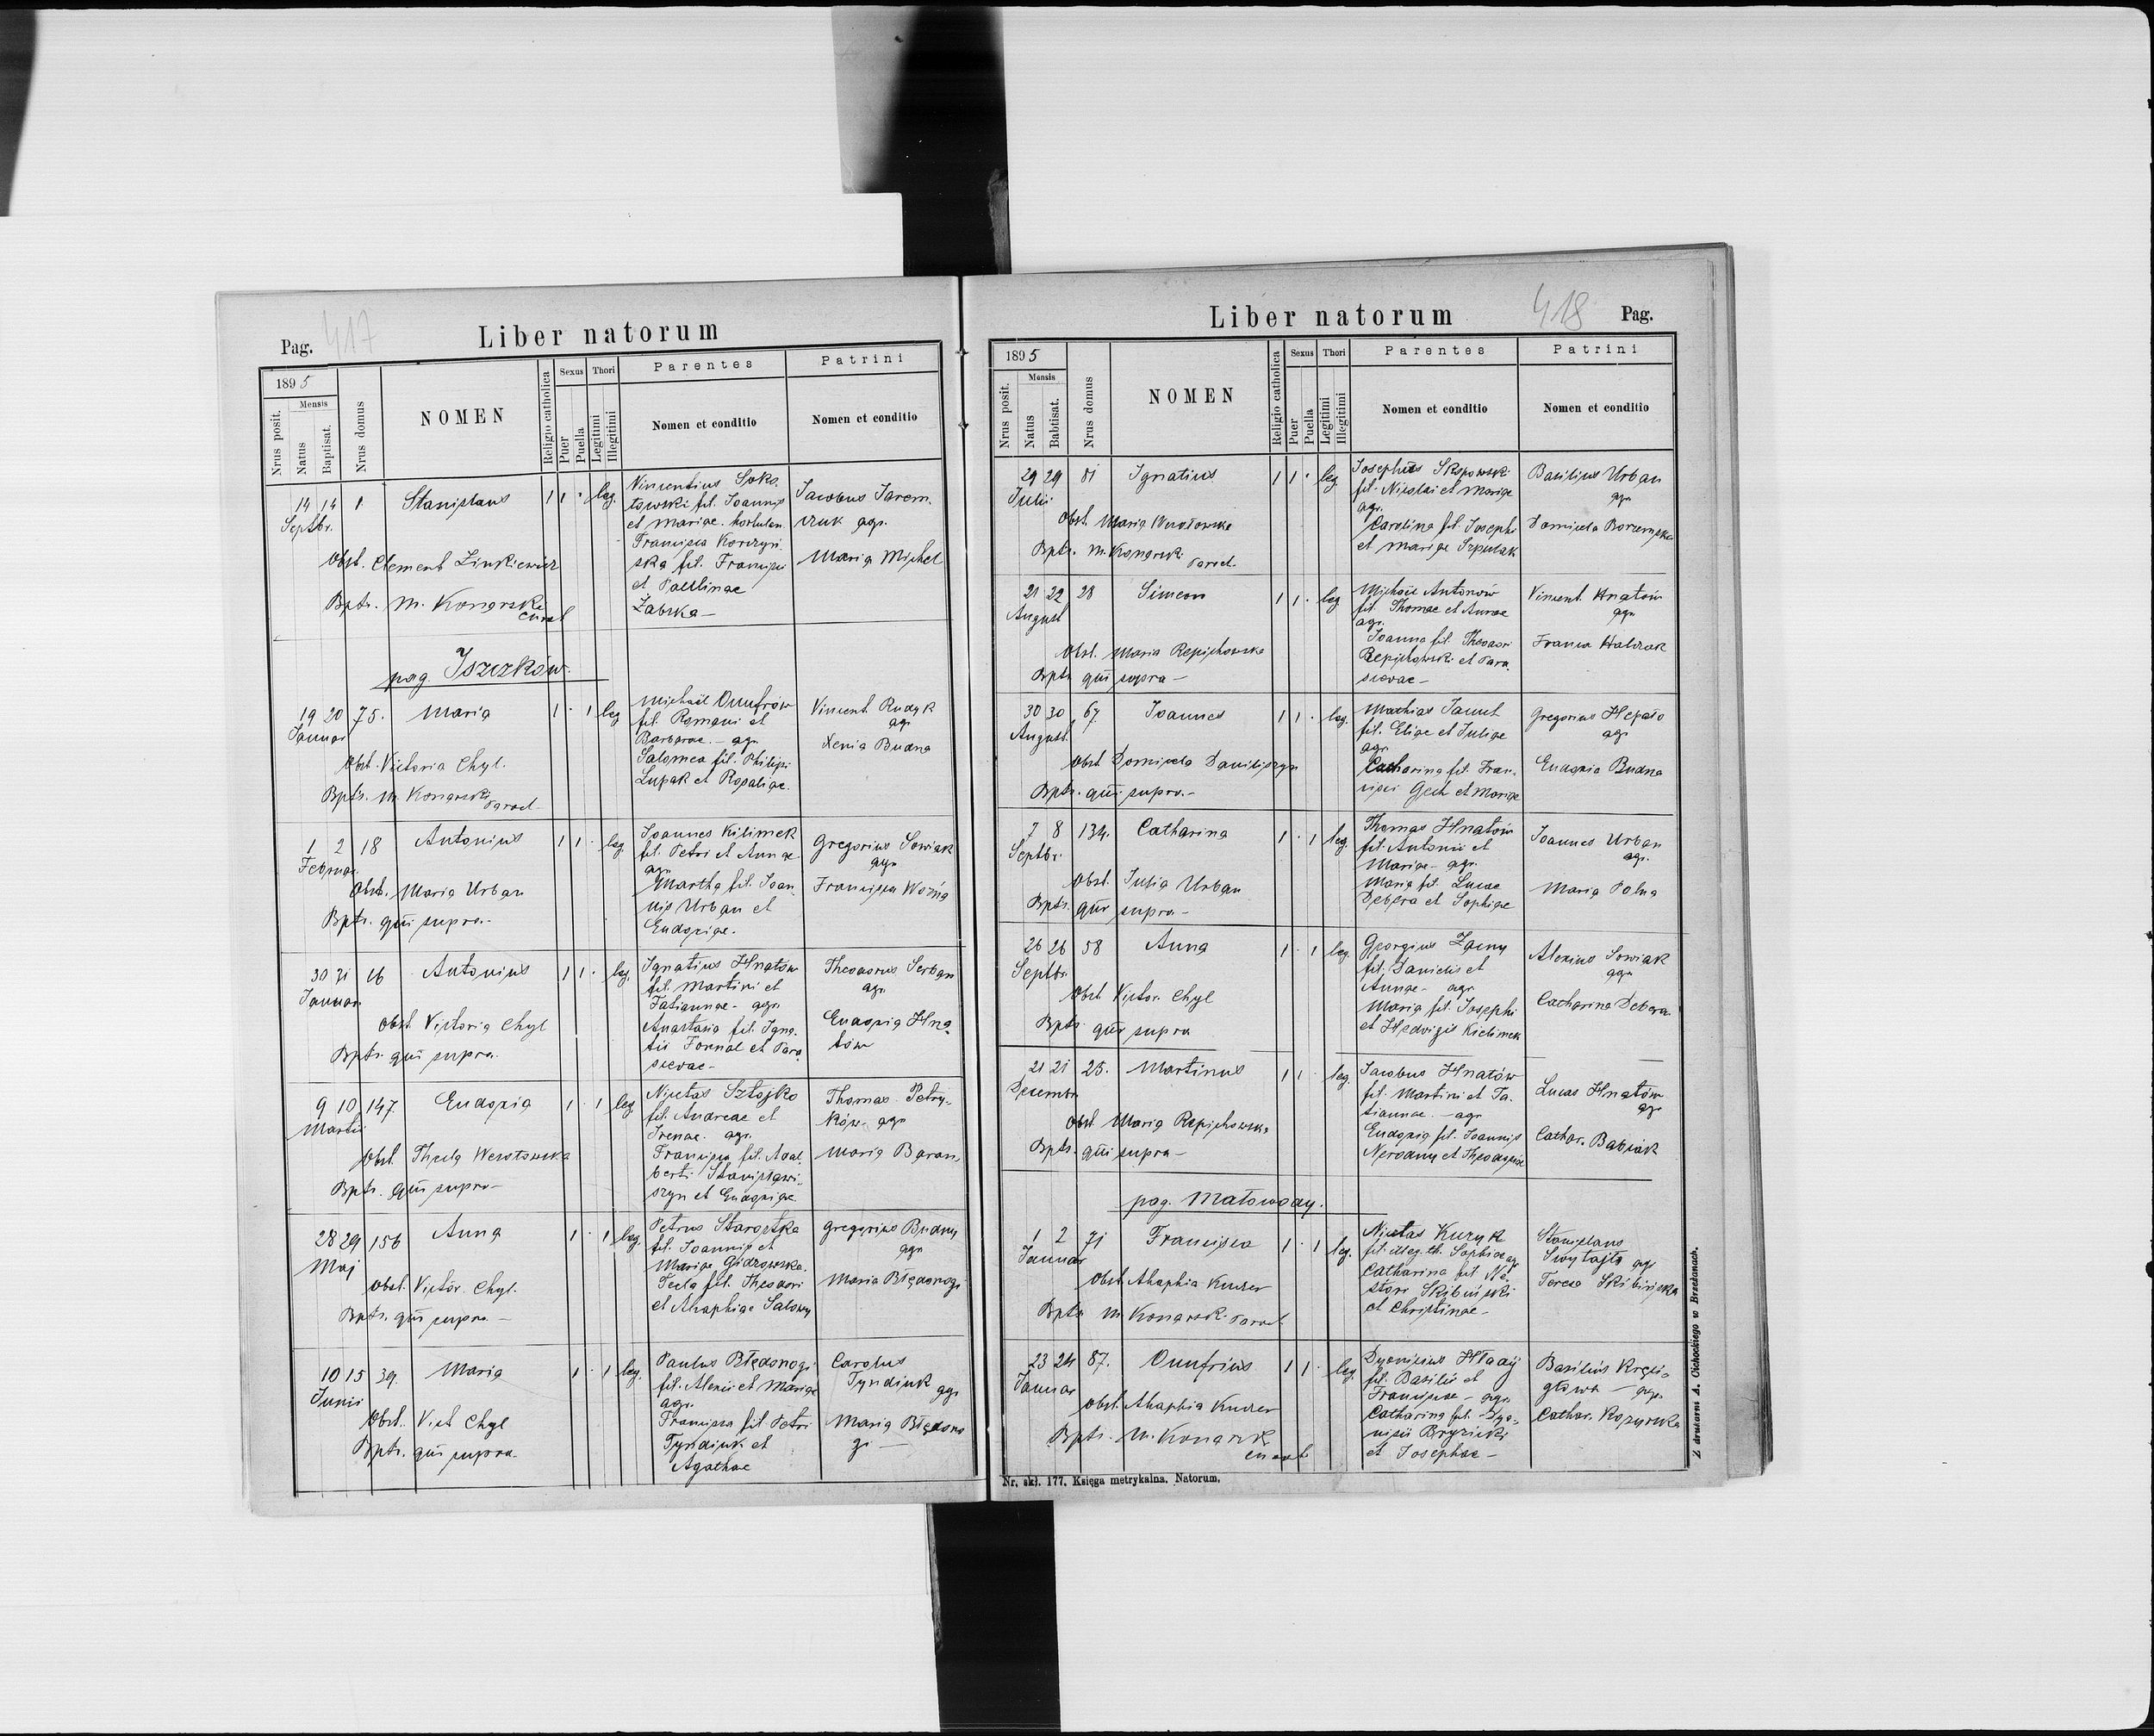 Pag. 417
Liber natorum
1895
Nrus posit.
Mensis
Natus
Baptisat.
Nrus domus
NOMEN
Religio catholica
Sexus
Puer
Puella
Thori
Legitimi
Illegitimi
Parentes
Nomen et conditio
Patrini
Nomen et conditio
14 14 1 Stanislaus 1 1 · leg.
Septbr.
Obst. Clement Zinkiewicz
Bptr. M. Konarski
curat
Vincentius Soko
łowski fil. Joannis
et Mariae
Francisca Korczyń
ska fil. Francisci
et Paulinae
Żabska —
Jacobus Jarem
czuk agr.
Maria Michel
pag Iszczków.
19 20 75. Maria 1 · 1 leg
Januar
Obst. Victoria Chyl.
Bptr. M. Konarski Paroch
Michaël Onufrów
fil. Romani et
Barbarae. — agr.
Salomea fil. Philipi
Łupak et Rosaliae.
Vincent Rudyk
agr
Xenia Budna
1 2 18 Antonius 1 1 · leg.
Februar.
Obst. Maria Urban
Bptr. qui supra —
Joannes Kilimek
fil. Petri et Annae
agr
Martha fil. Joan
nis Urban et
Eudoxiae.
Gregorius Sowiak
agr
Francisca Woźna
30 31 16 Antonius 1 1 · leg.
Januar
Obst. Victoria Chyl
Bptr. qui supra.
Ignatius Hnatów
fil. Martini et
Tatiannae — agr.
Anastasia fil. Igna
tii Fornal et Para
scevae —
Theodorus Serban
agr.
Eudoxia Hna
tów
9 10 147. Eudoxia 1 · 1 leg
Martii
Obst. Thecla Werstowska
Bptr. qui supra —
Nicetas Sztojko
fil. Andreae et
Irenae. agr.
Francisca fil. Adal
berti Stanisławi
szyn et Eudoxiae
Thomas Petry
ków agr
Maria Baran
28 29 156 Anna 1 · 1 leg.
Maj
Obst. Victor. Chyl.
Bptr. qui supra —
Petrus Starostka
fil. Joannis et
Mariae Gidzowska.
Tecla fil. Theodori
et Ahaphiae Sałowy
Gregorius Budny
agr
Maria Błędonogi
10 15 39. Maria 1 · 1 leg.
Junii
Obst. Vict Chyl
Bptr. qui supra.
Paulus Błędonogi
fil. Alexii et Mariae
agr.
Francisca fil. Petri
Tyndiuk et
Agathae
Carolus
Tyndiuk agr
Maria Błędono
gi —
Liber natorum
418 Pag.
1895
Nrus posit.
Mensis
Natus
Babtisat.
Nrus domus
NOMEN
Religio catholica
Sexus
Puer
Puella
Thori
Legitimi
Illegitimi
Parentes
Nomen et conditio
Patrini
Nomen et conditio
29 29 81 Ignatius 1 1 · leg
Julii
Obst. Maria
Bptr. M. Konarski Paroch.
Josephus
fil. Nicolai et Mariae
agr.
Carolina fil. Josephi
et Mariae Szpulak
Basilius Urban
agr
Domicela
21 22 28 Simeon 1 1 · leg
August
Obst. Maria Repichowska
Bptr. qui supra —
Michaël Antonów
fil. Thomae et Annae
agr.
Joanna fil. Theodori
Repichowski et Para
scevae —
Vincent. Hnatów
agr
Franca Halczak
30 30 67. Joannes 1 1 · leg.
August.
Obst Domicela Daniliszyn
Bptr. qui supra. —
Mathias
fil. Eliae et Juliae
agr.
Catharina fil. Fran
cisci Gech et Mariae
Gregorius
agr
Eudoxia Budna
7 8 134. Catharina 1 · 1 leg.
Septbr.
Obst. Julia Urban
Bptr. qui supra —
Thomas Hnatów
fil. Antonii et
Mariae — agr.
Maria fil. Lucae
Debera et Sophiae
Joannes Urban
agr.
Maria Polna
26 26 58 Anna 1 · 1 leg.
Septbr.
Obst Victor. Chyl
Bptr qui supra
Georgius Zacny
fil. Danielis et
Annae — agr
Maria fil. Josephi
et Hedvigis Kielimek
Alexius Sowiak
agr
Catharina Debera
21 21 25. Martinus 1 1 leg.
Decembr
Obst Maria Repichowska
Bptr. qui supra —
Jacobus Hnatów
fil. Martini et Ta
tiannae. — agr
Eudoxia fil. Joannis
Nerodny et Theodosiae
Lucas Hnatów
agr
Cathar. Babiak
pag. Małowody.
1 2 71 Francisca 1 · 1 leg.
Januar
Obst Ahaphia Kuczer
Bptr M. Konarski Paroch
Nicetas Kuzyk
fil. illeg. th. Sophiae agr
Catharina fil. Ne
stori Skibiński
et Christinae —
Stanislaus
Swytajło agr
Teresa Skibińska
23 24 87. Onufrius 1 1 · leg.
Januar
Obst. Ahaphia Kuczer
Bptr. M. Konarsk
curat
Dyonisius Hładij
fil. Basilii et
Franciscae — agr.
Catharina fil. Dyo
nisii Bryzicki
et Josephae —
Basilius Kręci
głowa — agr.
Cathar. Kozyrska
Nr. skł. 177. Księga metrykalna. Natorum.
Z drukarni A. Cichockiego w Brzeżanach.